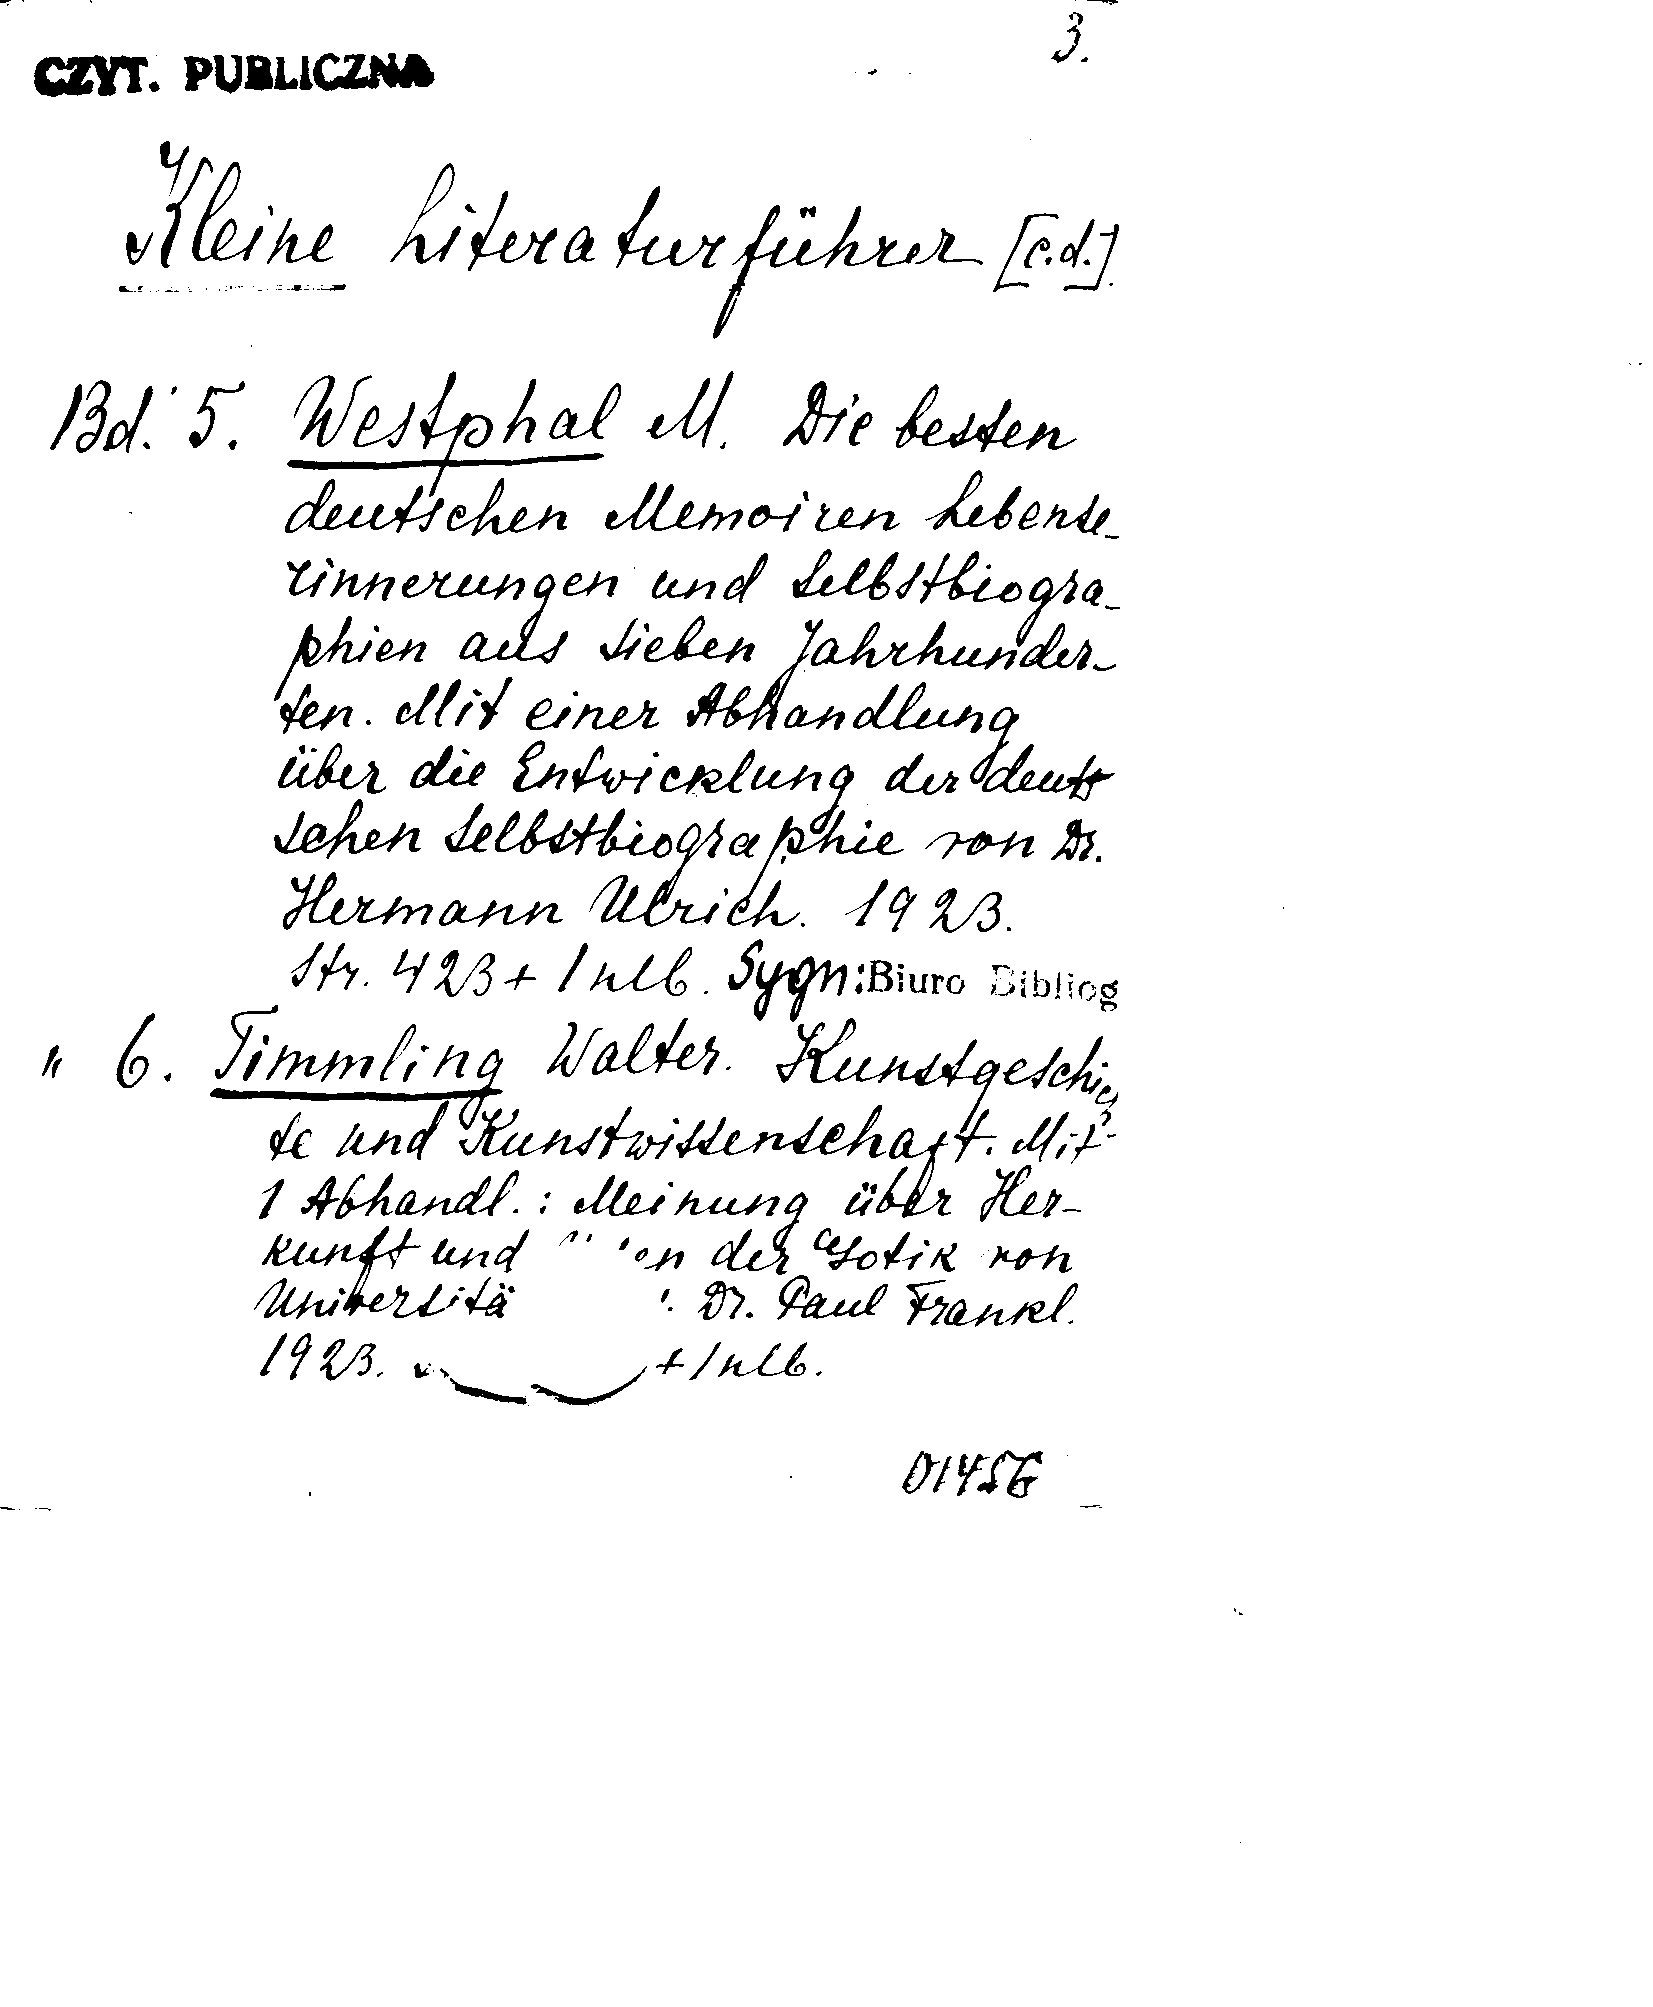 3.
CZYT. PUBLICZNA
Kleine Literaturführer [c.d.]
Bd. 5. Westphal M. Die besten
deutschen Memoiren Lebense-
rinnerungen und Selbstbiogra-
phien aus sieben Jahrhunder-
ten. Mit einer Abhandlung
über die Entwicklung der deut
schen Selbstbiographie von Dr.
Hermann Ulrich. 1923.
Str. 423 + 1 nlb. Sygn: Biuro Bibliog
" 6. Timmling Walter. Kunstgeschich
te und Kunstwissenschaft. Mit
1 Abhandl.: Meinung über Her-
kunft und der Gotik von
Universitä Dr. Paul Frankl.
1923. + 1 nlb.
01456